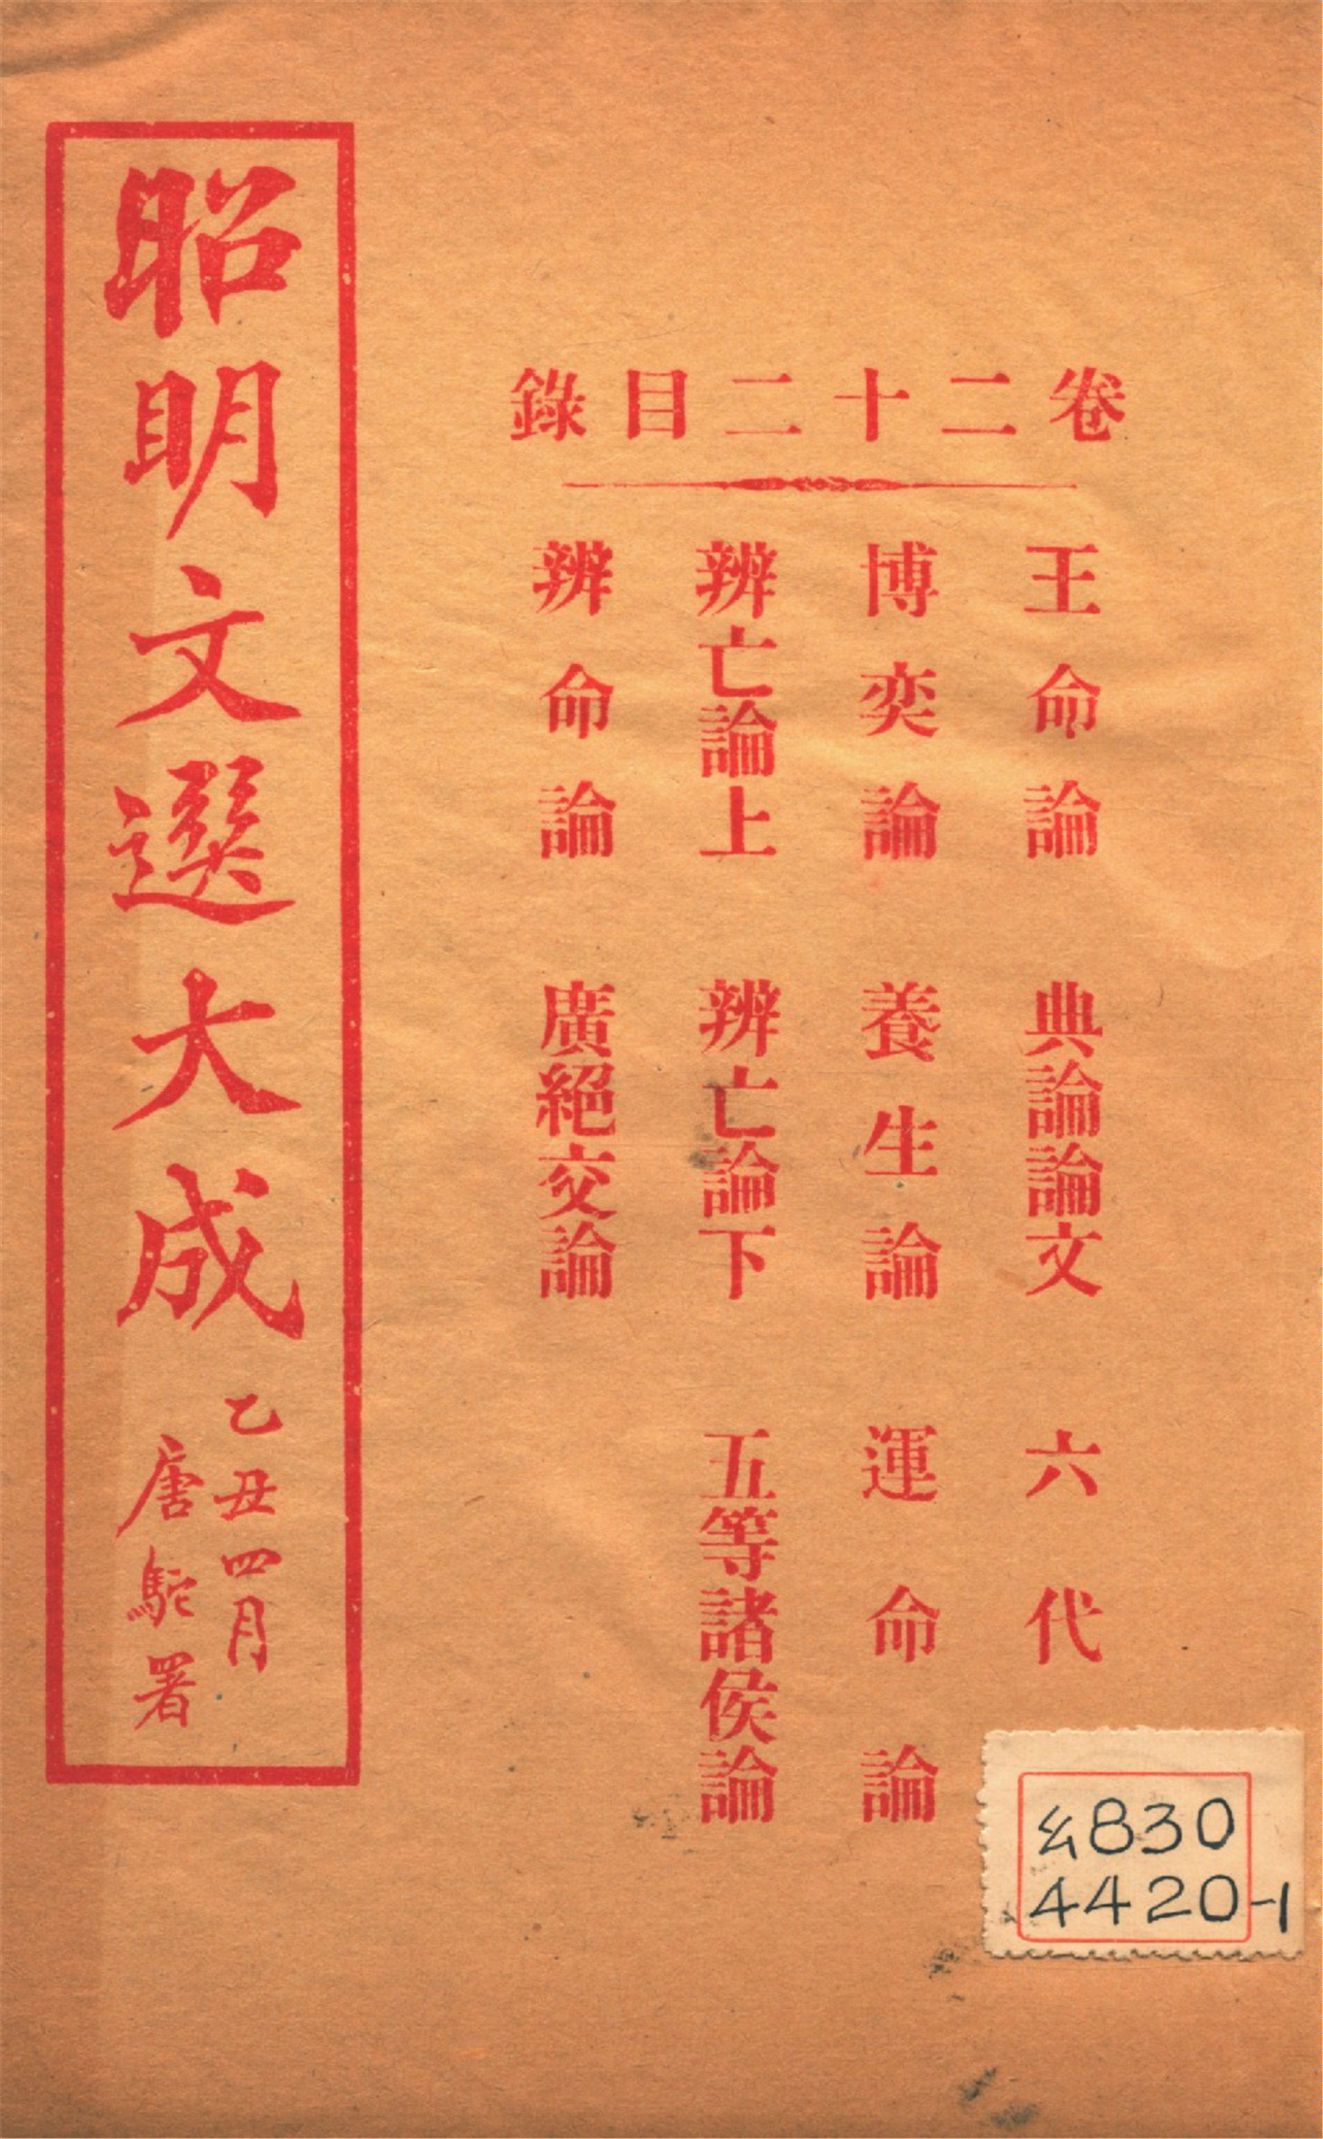 卷二十二目錄
王命論 典論論文 六代
博奕論 養生論 運命論
辨亡論上 辨亡論下 五等諸侯論
辨命論 廣絕交論
昭明文選大成
乙丑四月
唐駝署
830
4420-1